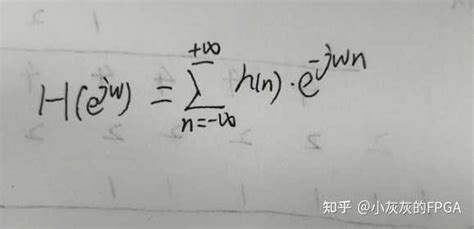 H(e^{jw}) = \sum_{n=-\infty}^{+\infty} h(n) \cdot e^{-jwn}
知乎 @小灰灰的FPGA